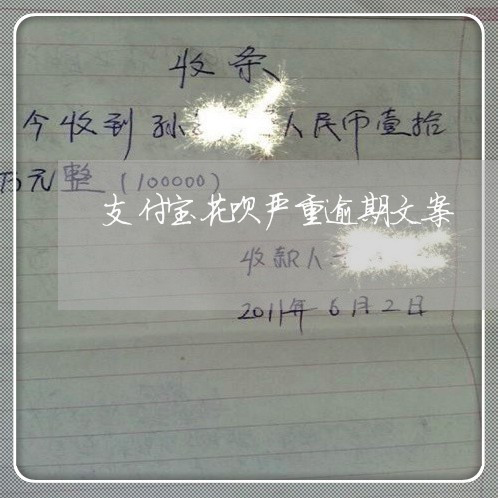 收条
今收到孙 人民币壹拾
万元整(100000)
支付宝花呗严重逾期文案
收款人
2011年6月2日